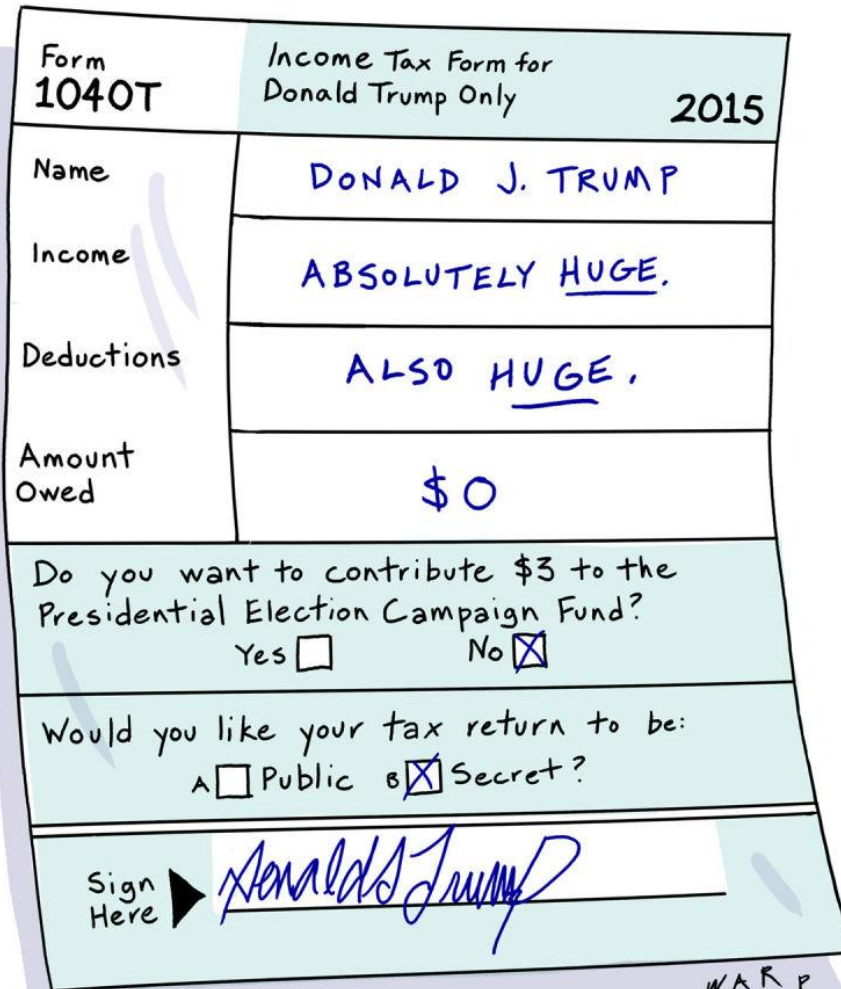 Form
1040T
Income Tax Form for
Donald Trump Only
2015
Name
DONALD J. TRUMP
Income
ABSOLUTELY HUGE.
Deductions
ALSO HUGE.
Amount
Owed
$0
Do you want to contribute $3 to the
Presidential Election Campaign Fund?
Yes No
Would you like your tax return to be:
A Public B Secret?
Sign
Here
Donald J Trump
WARP